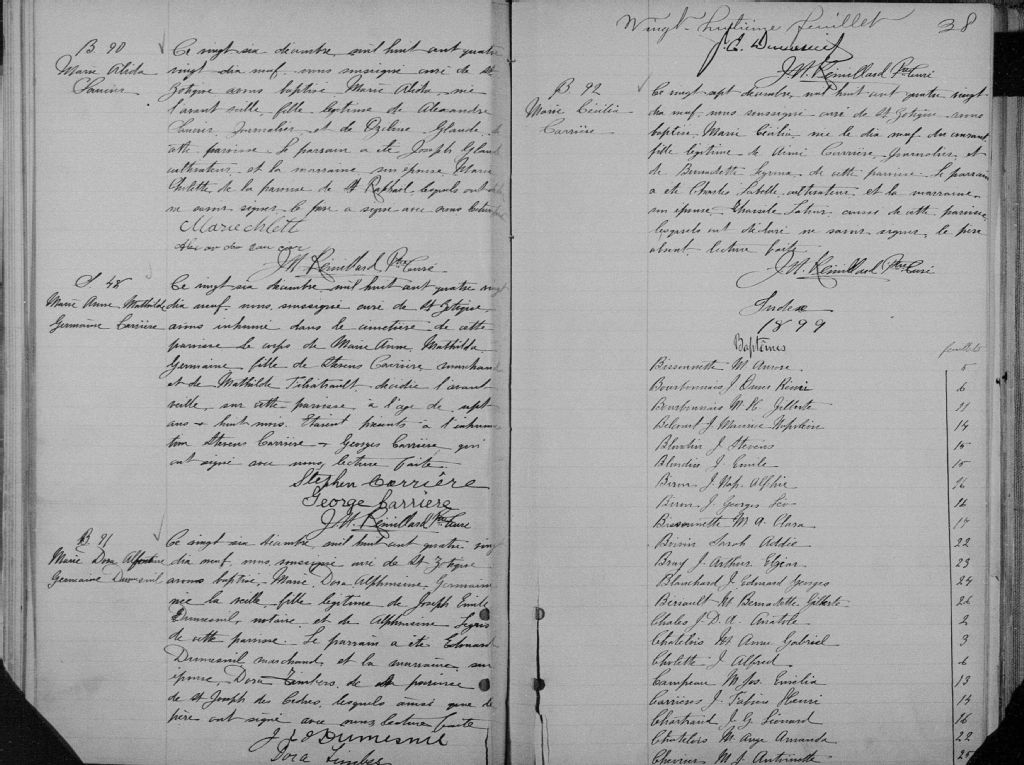 B 90
Marie Alida
Ce vingt six décembre, mil huit cent quatre
vingt dix neuf, nous soussigné curé de St
Zotique avons baptisé Marie Alida, née
l'avant veille, fille légitime de Alexandre
journalier, et de Glaude de
cette paroisse. Le parrain a été Joseph Glaude
cultivateur, et la marraine son épouse Marie
Cholette de la paroisse de St Raphael lesquels ont
ne savoir signer le père a signé avec nous lecture faite
Marie chlett
J.H. Rémillard Ptre Curé
S 48
Marie Anne Mathilda
Germaine Carrière
Ce vingt six décembre, mil huit cent quatre vingt
dix neuf, nous, soussigné curé de St Zotique,
avons inhumé dans le cimetière de cette
paroisse le corps de Marie Anne Mathilda
Germaine, fille de Stevens Carrière, marchand
et de Mathilde décédée l'avant
veille, sur cette paroisse, à l'age de sept
ans + huit mois. Etaient présents à l'inhuma
tion Stevens Carrière + Georges Carrière, qui
ont signé avec nous, lecture faite.
Stephen Carrière
George Carriere
J.H. Rémillard Ptre Curé
B 91
Marie Dora Alphonsine
Germaine Dumesnil
Ce vingt six décembre, mil huit cent quatre vingt
dix neuf, nous, soussigné curé de St Zotique,
avons baptisé, Marie Dora Alphonsine Germaine
née la veille, fille légitime de Joseph Emile
Dumesnil, notaire, et de Alphonsine
de cette paroisse. Le parrain a été Edouard
Dumesnil marchand et la marraine, son
épouse, Dora de la paroisse
de St Joseph des Cèdres, lesquels ainsi que le
père ont signé avec nous, lecture faite
J E O Dumesnil
Dora
Vingt huitième feuillet 38
J.E. Dumesnil
J.H. Rémillard Ptre Curé
B 92
Marie Cécilia
Carrière
Ce vingt sept décembre, mil huit cent quatre vingt
dix neuf, nous soussigné curé de St Zotique avons
baptisé, Marie Cécilia, née le dix neuf du courant
fille légitime de Aimé Carrière, journalier et
de Bernadette de cette paroisse. Le parrain
a été Charles Labelle, cultivateur, et la marraine
son épouse, aussi de cette paroisse,
lesquels ont déclaré ne savoir signer, le père
absent. lecture faite
J.H. Rémillard Ptre Curé
Index
1899
Baptêmes feuillets
Bissonnette M Aurore 5
Bourbonnais J 6
Bourbonnais M Gilberte 11
J Maurice 14
Blondin J Stevens 15
Blondin J Emile 15
J Nap. Alphie 16
J Georges Léo 16
Bissonnette M A Clara 17
Addie 22
Bray J. Arthur Elzéar 23
Blanchard J Edouard Georges 24
M Bernadette Gilberte 26
J. D. A. Anatole 2
Chatelois M Anne Gabriel 3
Cholette J Alfred 6
Campeau M Jos. Emilia 13
Carrières J Fabien Henri 14
Chartrand J G Léonard 16
Chatelois M Ange Amanda 22
Chevrier M J Antoinette 25